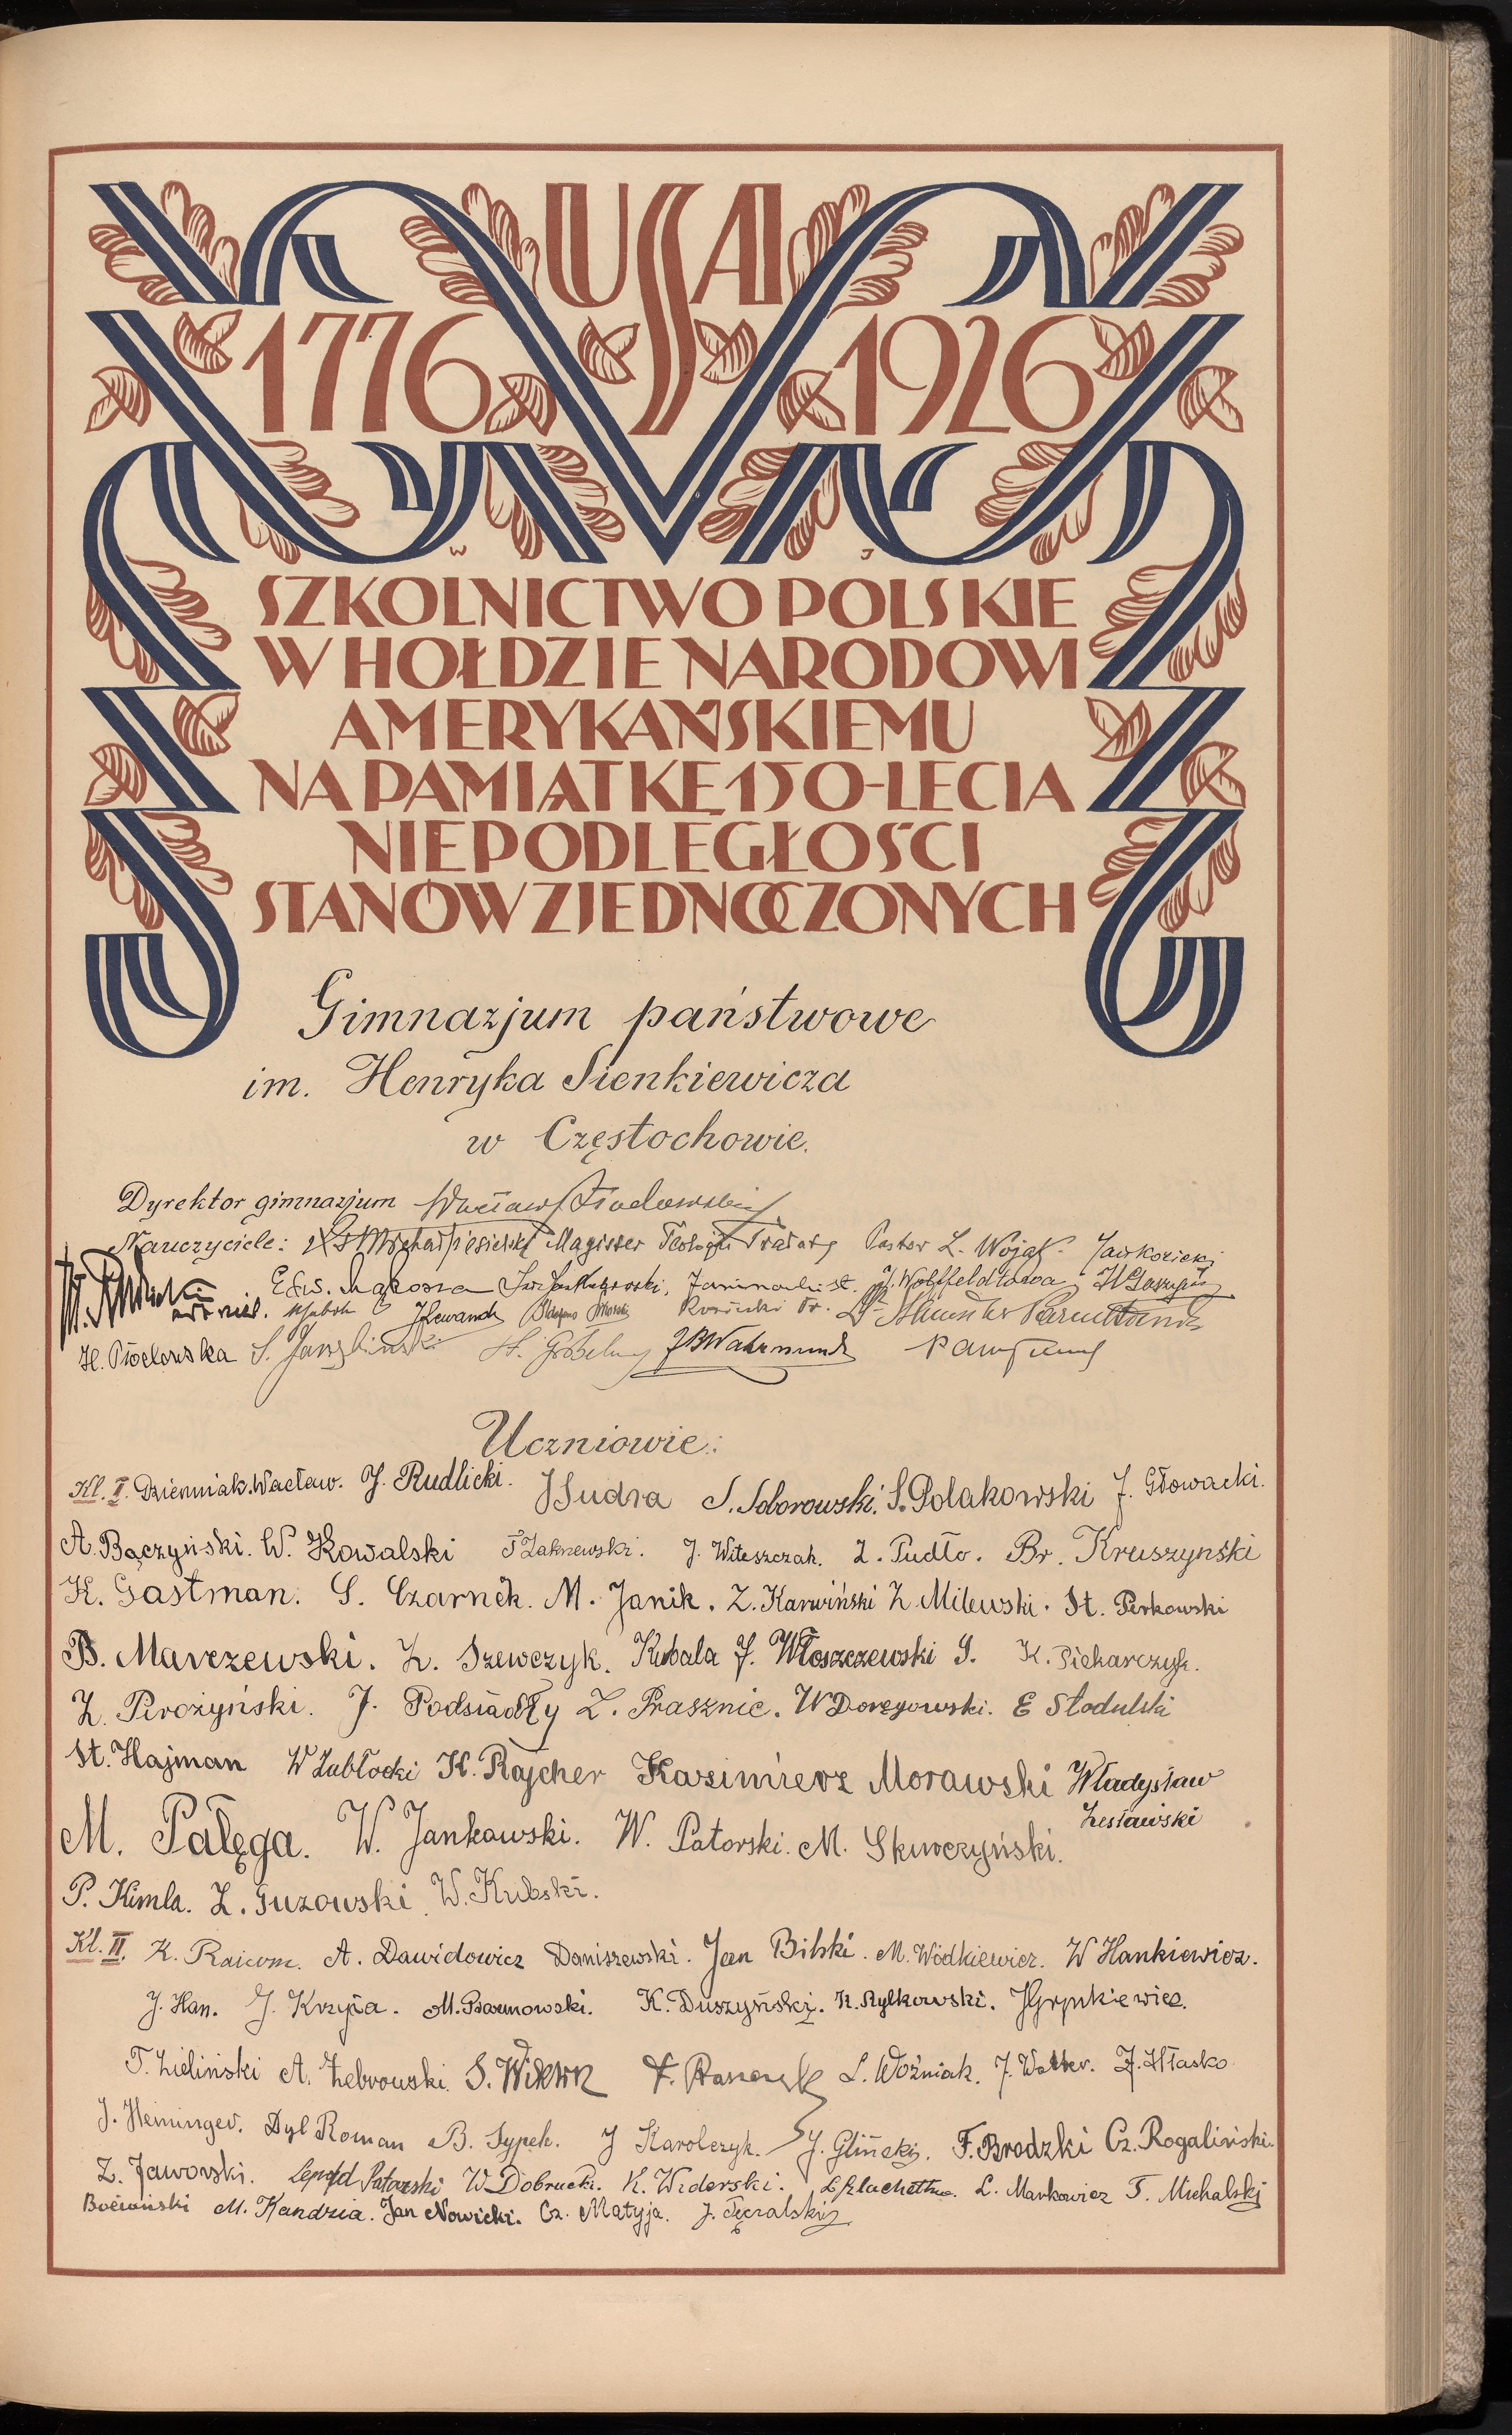 USA
1776 1926
W J
SZKOLNICTWO POLSKIE
W HOŁDZIE NARODOWI
AMERYKAŃSKIEMU
NA PAMIĄTKĘ 150-LECIA
NIEPODLEGŁOŚCI
STANÓW ZJEDNOCZONYCH
Gimnazjum państwowe
im. Henryka Sienkiewicza
w Częstochowie.
Dyrektor gimnazjum Wacław
Nauczyciele: Magister Teologii Pastor L. Wojak.
Edw. Mąkosza
J Lewandt
H. Pawelowska S. J. B Wahrmund
Uczniowie:
Kl. I. Dzienniak Wacław. J. Rudlicki. J Sudra S. Soborowski. S. Polakowski J. Głowacki.
A. Bączyński. W. Kowalski F Zakrzewski. J. Witeszczak. Z. Pudło. Br. Kruszyński
K. Gastman. S. Czarnek. M. Janik. Z. Karwiński Z. Milewski. St. Perkowski
B. Marczewski. Z. Szewczyk. Kubala J. Włoszczewski S. K. Piekarczyk.
Z. Pirożyński. J. Podsiadły Z. Prasznic. W Doręgowski. E Słodulski
St. Hajman W Zabłocki K. Rajcher Kazimierz Morawski Władysław
Zesławski
M. Pałęga. W. Jankowski. W. Patorski. M. Skurczyński.
P. Kimla. Z. Guzowski. W. Kubski.
Kl. II. A. Dawidowicz Daniszewski. Jan Bilski. M. Wódkiewicz. W Hankiewicz.
J. Han. J. Krzyca. M. Baranowski. K. Duszyński. K. Rylkowski. J Grynkiewicz.
T. Zieliński A. Żebrowski. S. Wiktor L. Woźniak. J. Walter. J. Hłasko.
J. Heminger. Dyl Roman B. Sypek. J Karolczyk. J. Gliński. F. Brodzki Cz. Rogaliński.
Z. Jaworski. Leopold Patorski W Dobrucki. K. Widerski. L Szlachetka. L. Markowicz T. Michalski
Bociański M. Kandzia. Jan Nowicki. Cz. Matyja. J. Tęcralski